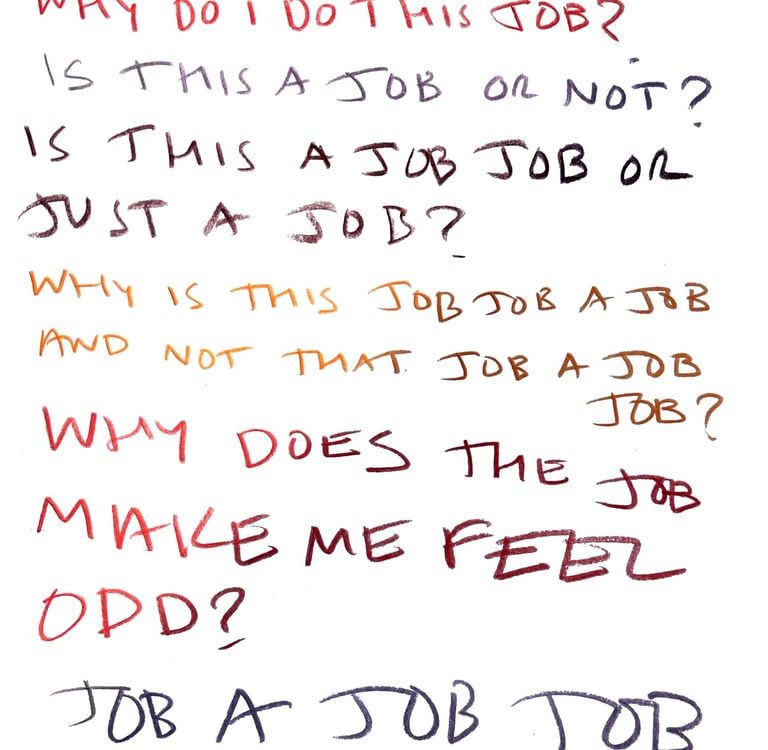 WHY DO I DO THIS JOB?
IS THIS A JOB OR NOT?
IS THIS A JOB JOB OR
JUST A JOB?
WHY IS THIS JOB JOB A JOB
AND NOT THAT JOB A JOB
JOB?
WHY DOES THE JOB
MAKE ME FEEL
ODD?
JOB A JOB JOB